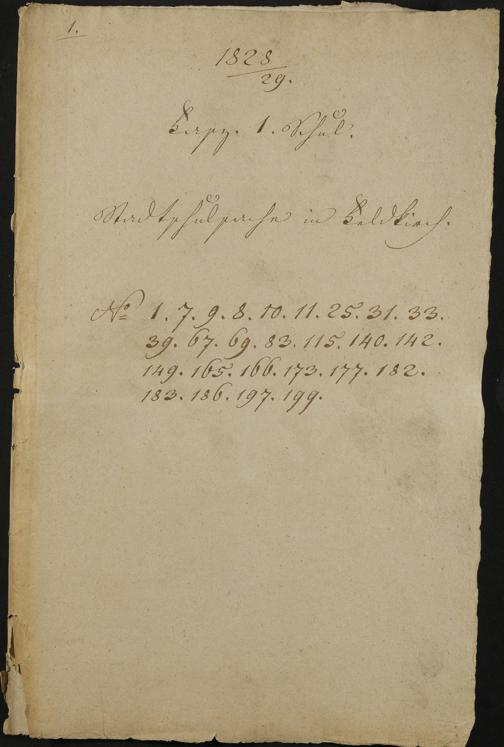 1.
1828
29.
Fasz. 1. Schul.
Stadtschulsache in Feldkirch.
No 1. 7. 9. 8. 10. 11. 25. 31. 33.
39. 67. 69. 83. 115. 140. 142.
149. 165. 166. 173. 177. 182.
183. 186. 197. 199.